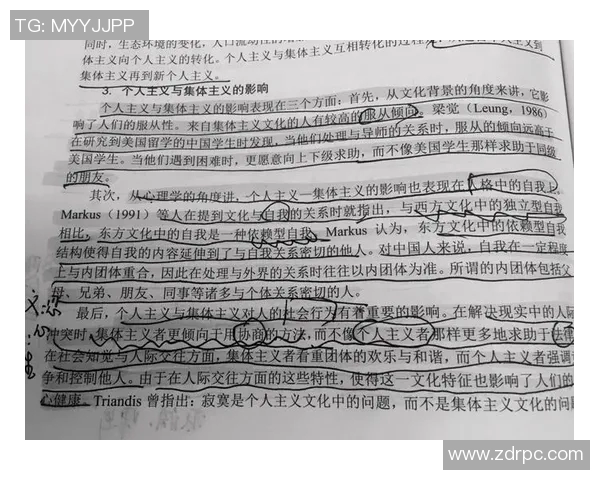 TG: MYYJJPP
同时,生态环境的变化,人口流动性的
体主义向个人主义的转化。个人主义与集体主义互相转化的过程
集体主义再到新个人主义。
3. 个人主义与集体主义的影响
个人主义与集体主义的影响表现在三个方面:首先,从文化背景的角度来讲,它影
响了人们的服从性。来自集体主义文化的人有较高的服从倾向。梁觉(Leung,1986)
在研究到美国留学的中国学生时发现,当他们处理与导师的关系时,服从的倾向远高于
美国学生。当他们遇到困难时,更愿意向上下级求助,而不像美国学生那样求助于同级
的朋友。
其次,从心理学的角度讲,个人主义—集体主义的影响也表现在人格中的自我上。
Markus(1991)等人在提到文化与自我的关系时就指出,与西方文化中的独立型自我
相比,东方文化中的自我是一种依赖型自我。Markus 认为,东方文化中的依赖型自我
结构使得自我的内容延伸到了与自我关系密切的他人。对中国人来说,自我在一定程度
上与内团体重合,因此在处理与外界的关系时往往以内团体为准。所谓的内团体包括父
母、兄弟、朋友、同事等诸多与个体关系密切的人。
最后,个人主义与集体主义对人的社会行为有着重要的影响。在解决现实中的人际
冲突时,集体主义者更倾向于用协商的方法,而不像个人主义者那样更多地求助于法律
在社会知觉与人际交往方面,集体主义者看重团体的欢乐与和谐,而个人主义者强调
争和控制他人。由于在人际交往方面的这些特性,使得这一文化特征也影响了人们的
心健康。Triandis 曾指出:寂寞是个人主义文化中的问题,而不是集体主义文化的问
www.zdrpc.com